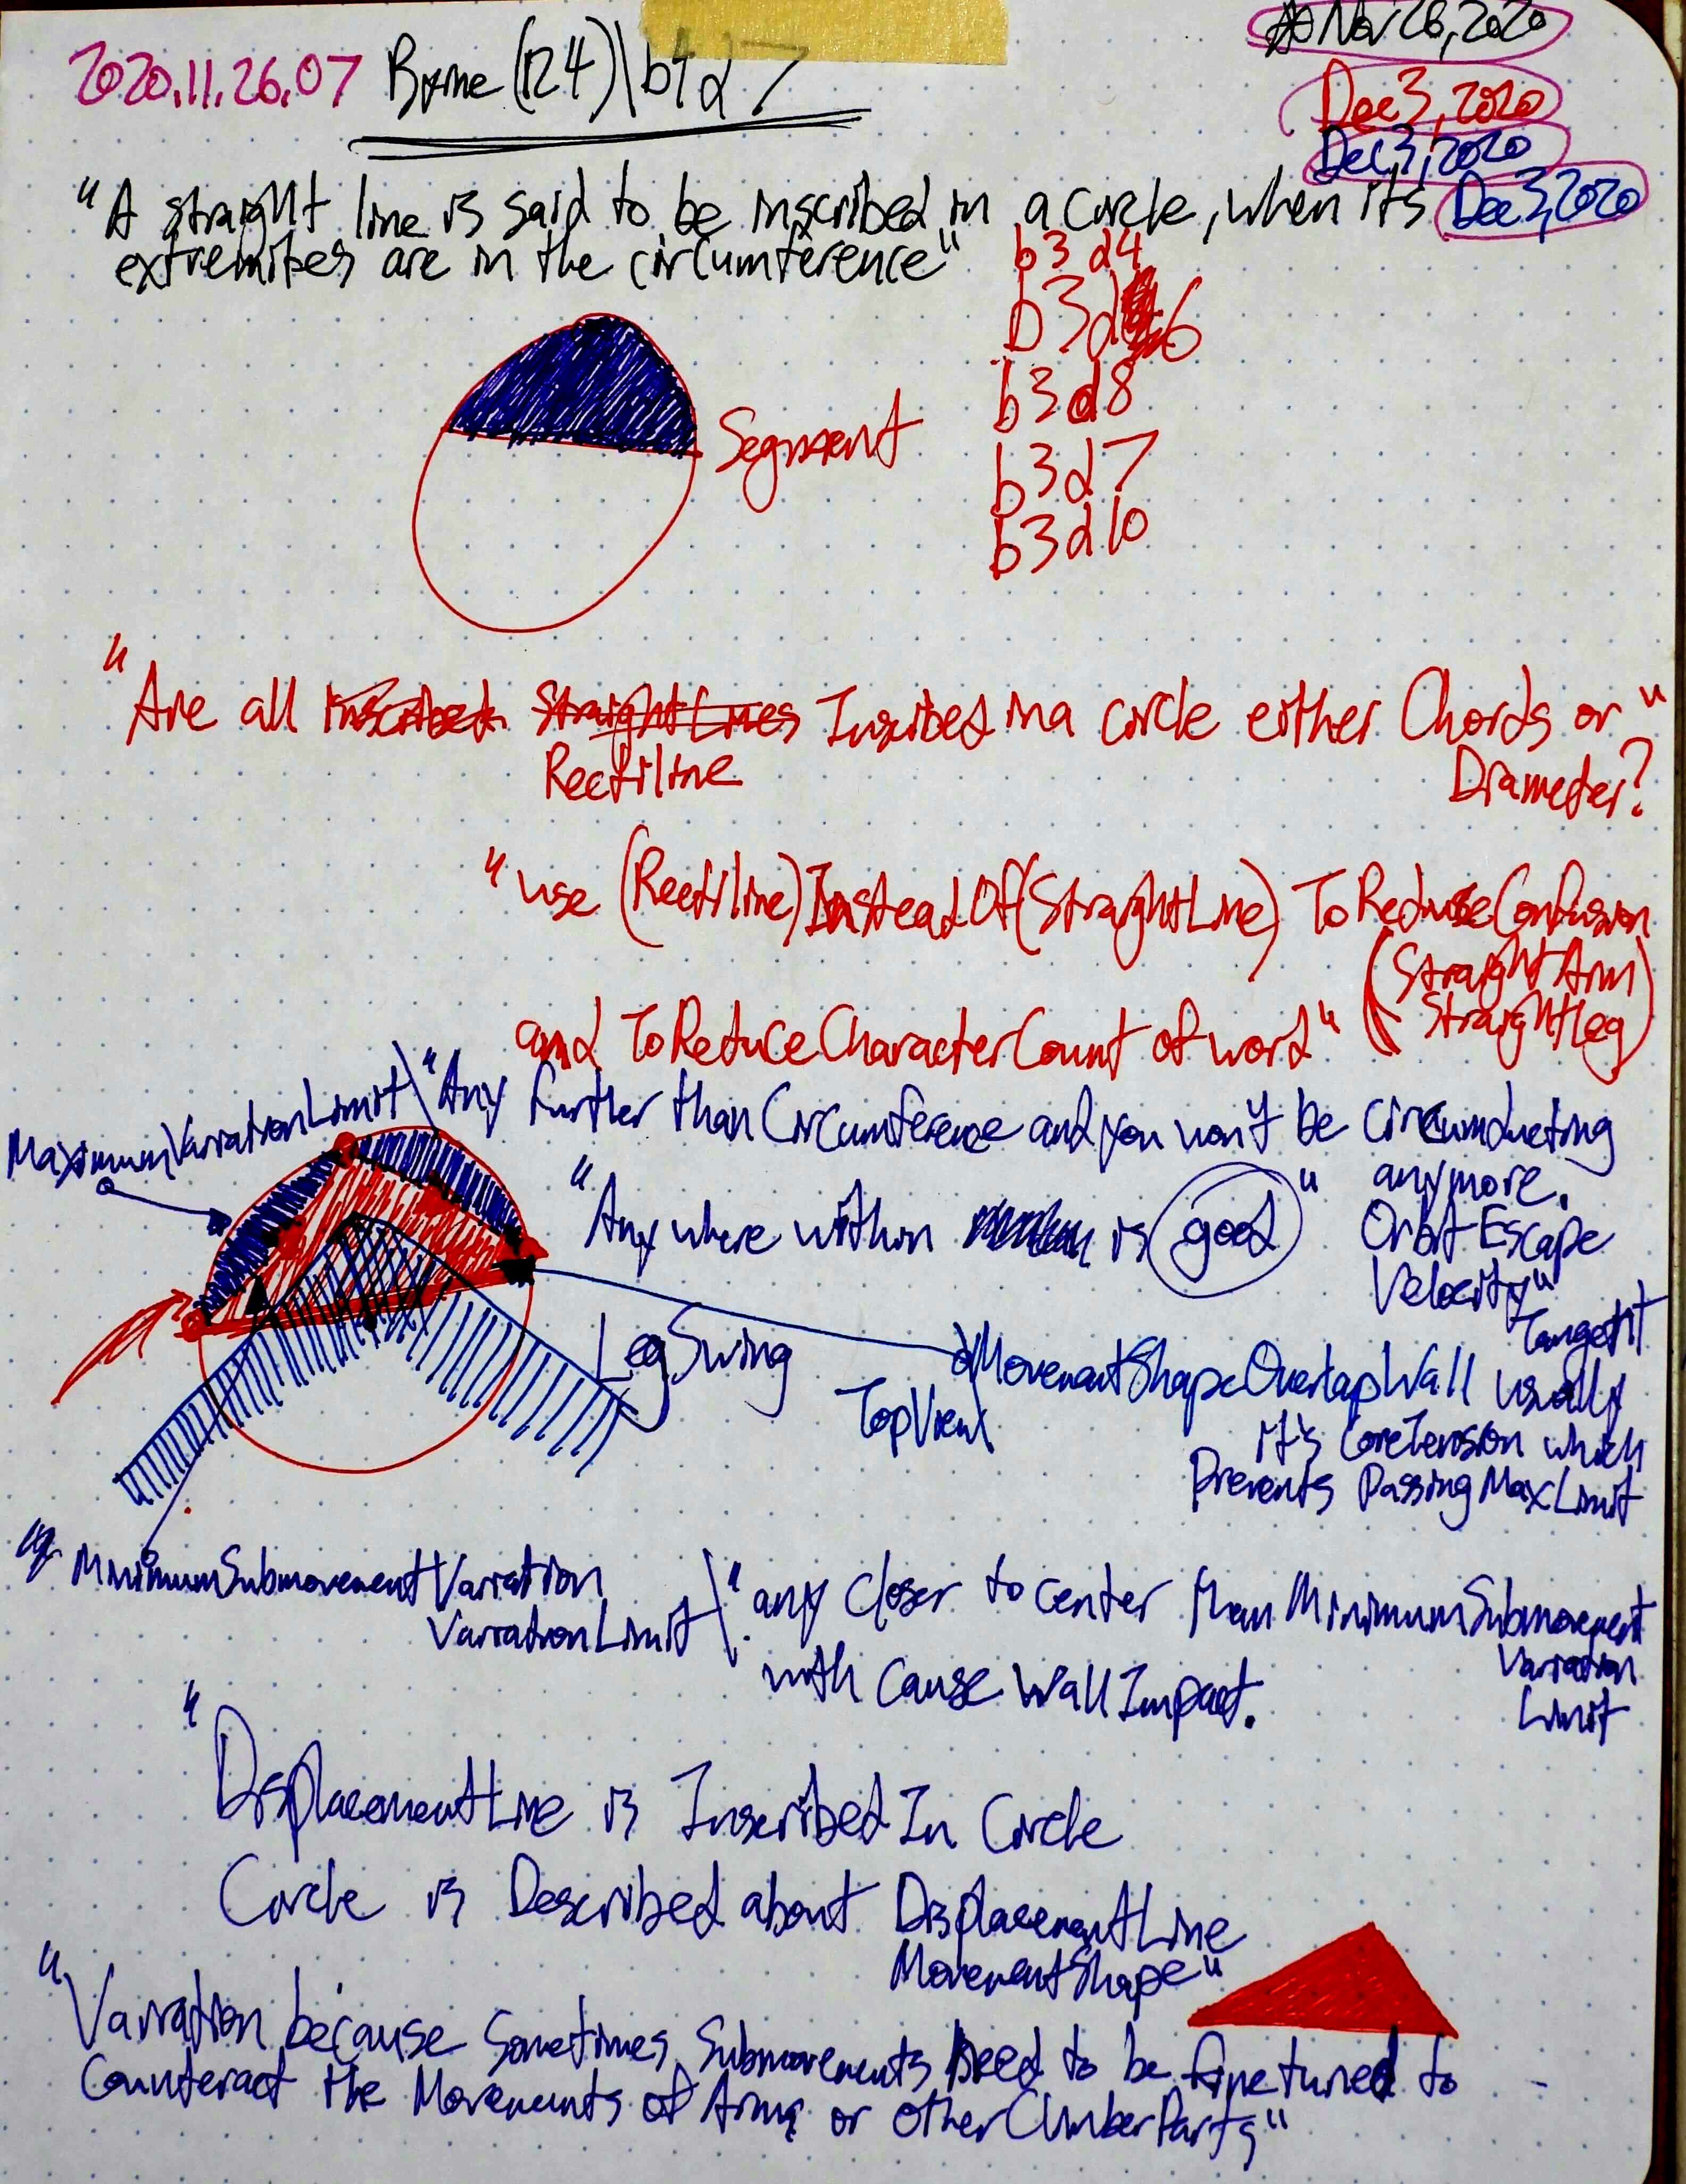 Nov 26, 2020
2020.11.26.07 Byrne (124)\b4d7
Dec 3, 2020
Dec 3, 2020
Dec 3, 2020
"A straight line is said to be inscribed in a circle, when its
extremities are in the circumference"
b3 d4
b3d6
b3d8
Segment
b3d7
b3d10
"Are all Inscribed Straight Lines Inscribed in a circle either Chords or"
Rectiline
Diameter?
"use (Rectiline)InsteadOf(StraightLine) ToReduceConfusion
(StraightArm
StraightLeg)
and ToReduceCharacterCount of word"
MaximumVariationLimit\"Any further than Circumference and you won't be circumducting
anymore.
"Any where within is good"
Orbit Escape
Velocity"
Tangent
LegSwing
MovementShapeOverlapWall usually
TopView
it's CoreTension which
Prevents Passing MaxLimit
MinimumSubmovementVariation
VariationLimit\"any closer to center than MinimumSubmovement
Variation
Limit
with cause WallImpact.
"DisplacementLine is Inscribed In Circle
Circle is Described about DisplacementLine
MovementShape"
"Variation because Sometimes Submovements need to be fine tuned to
Counteract the Movements of Arms or other ClimberParts"